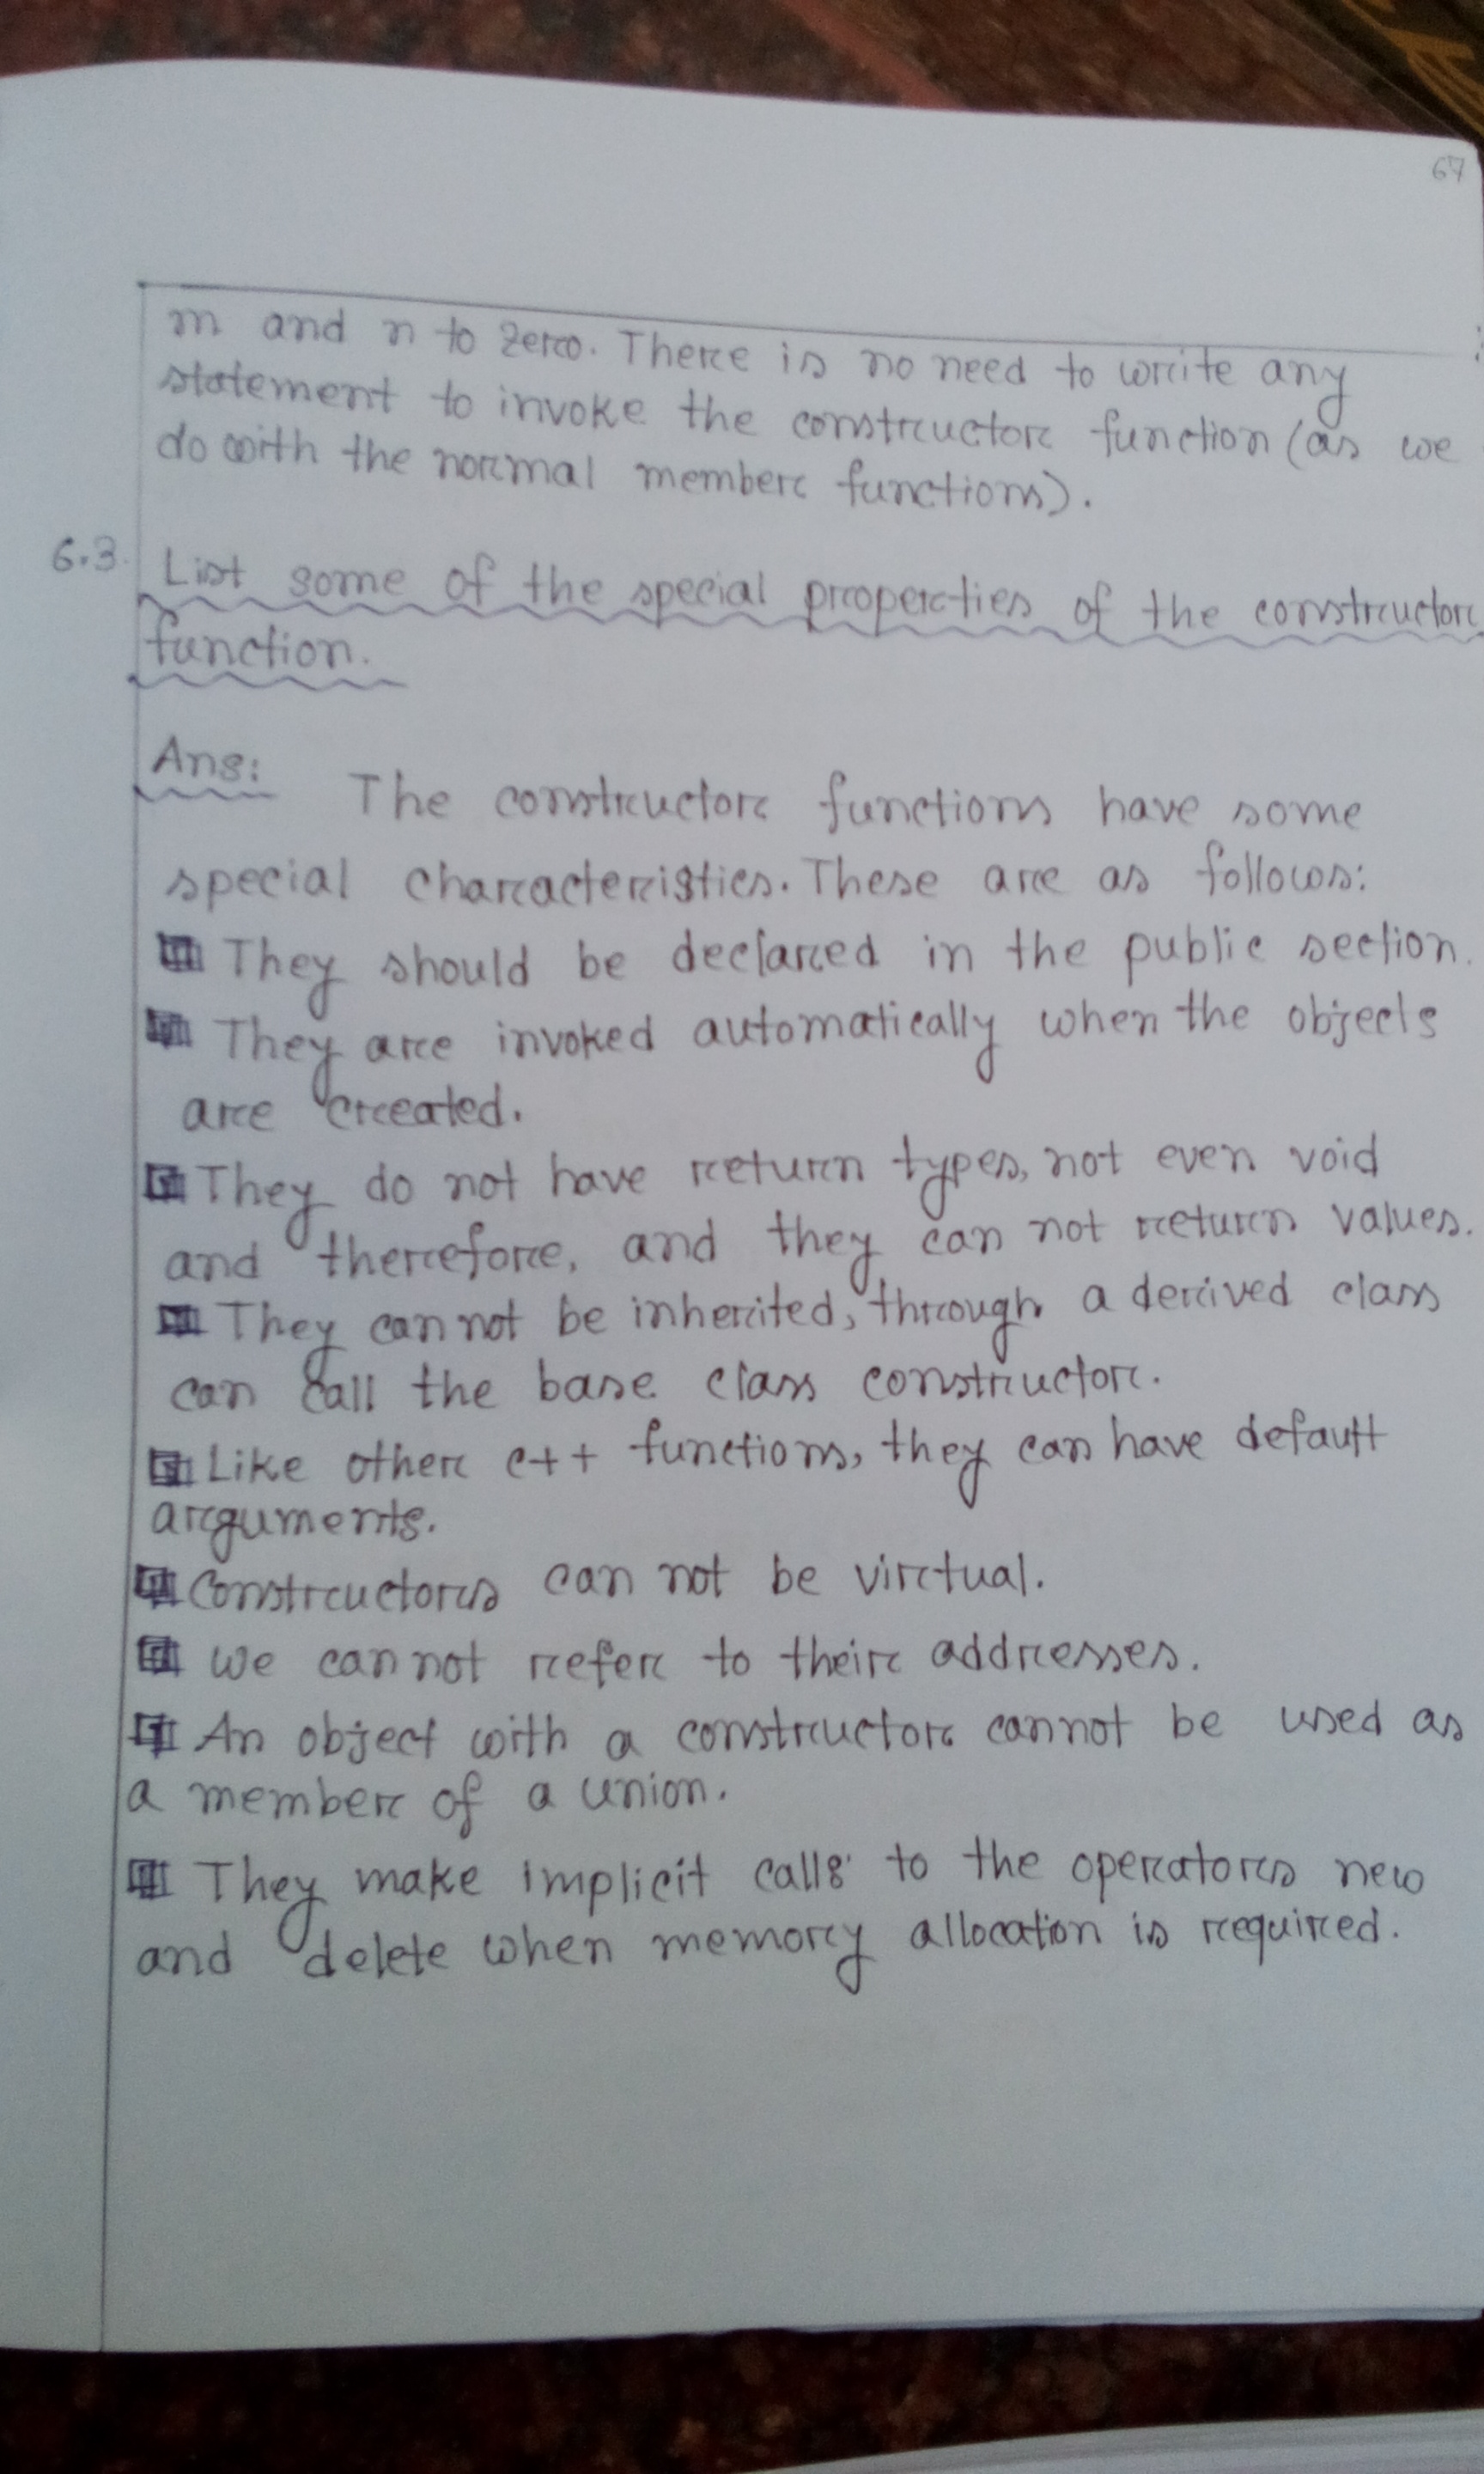 67
m and n to zero. There is no need to write any
statement to invoke the constructor function (as we
do with the normal member functions).
6.3. List some of the special properties of the constructor
function.
Ans: The constructor functions have some
special characteristics. These are as follows:
They should be declared in the public section.
They are invoked automatically when the objects
are created.
They do not have return types, not even void
and therefore, and they can not return values.
They can not be inherited, through a derived class
can call the base class constructor.
Like other c++ functions, they can have default
arguments.
Constructors can not be virtual.
We can not refer to their addresses.
An object with a constructor cannot be used as
a member of a union.
They make implicit calls to the operators new
and delete when memory allocation is required.